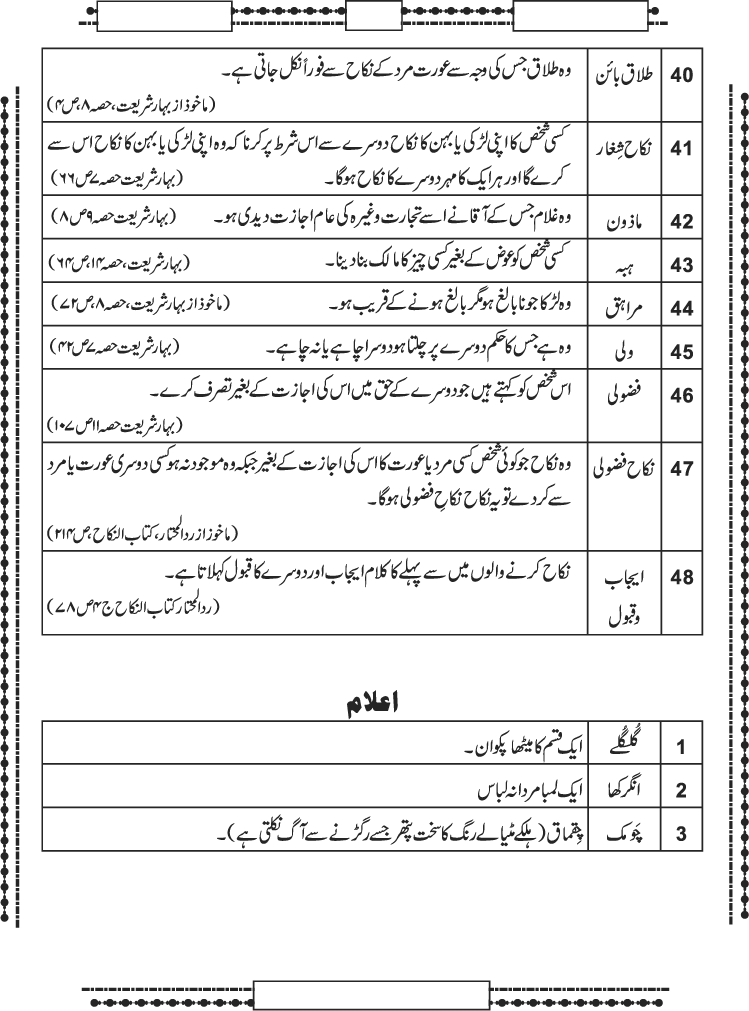 40 طلاق بائن وہ طلاق جس کی وجہ سے عورت مرد کے نکاح سے فوراً نکل جاتی ہے۔
(ماخوذ از بہار شریعت، حصہ ۸، ص ۴)
41 نکاح شِغار کسی شخص کا اپنی لڑکی یا بہن کا نکاح دوسرے سے اس شرط پر کرنا کہ وہ اپنی لڑکی یا بہن کا نکاح اس سے
کرے گا اور ہر ایک کا مہر دوسرے کا نکاح ہوگا۔ (بہار شریعت حصہ ۷ ص ۶۶)
42 ماذون وہ غلام جس کے آقا نے اسے تجارت وغیرہ کی عام اجازت دیدی ہو۔ (بہار شریعت حصہ ۹ ص ۸)
43 ہبہ کسی شخص کو عوض کے بغیر کسی چیز کا مالک بنا دینا۔ (بہار شریعت، حصہ ۱۴، ص ۶۴)
44 مراہق وہ لڑکا جو نابالغ ہو مگر بالغ ہونے کے قریب ہو۔ (ماخوذ از بہار شریعت، حصہ ۸، ص ۷۲)
45 ولی وہ ہے جس کا حکم دوسرے پر چلتا ہو دوسرا چاہے یا نہ چاہے۔ (بہار شریعت حصہ ۷ ص ۴۲)
46 فضولی اس شخص کو کہتے ہیں جو دوسرے کے حق میں اس کی اجازت کے بغیر تصرف کرے۔
(بہار شریعت حصہ ۱۱ ص ۱۰۷)
47 نکاح فضولی وہ نکاح جو کوئی شخص کسی مرد یا عورت کا اس کی اجازت کے بغیر جبکہ وہ موجود نہ ہو کسی دوسری عورت یا مرد
سے کر دے تو یہ نکاح نکاحِ فضولی ہوگا۔
(ماخوز از ردالمحتار، کتاب النکاح، ص ۲۱۴)
48 ایجاب نکاح کرنے والوں میں سے پہلے کا کلام ایجاب اور دوسرے کا قبول کہلاتا ہے۔
وقبول (ردالمحتار کتاب النکاح ج ۴ ص ۷۸)
اعلام
1 گُلگُلے ایک قسم کا میٹھا پکوان۔
2 انگرکھا ایک لمبا مردانہ لباس
3 چَومک چقماق (ہلکے مٹیالے رنگ کا سخت پتھر جسے رگڑنے سے آگ نکلتی ہے)۔